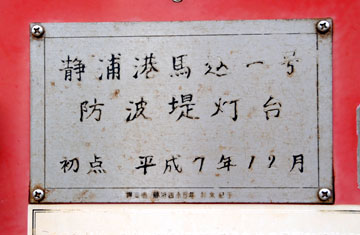 静浦港馬込一号
防波堤灯台
初点 平成7年12月